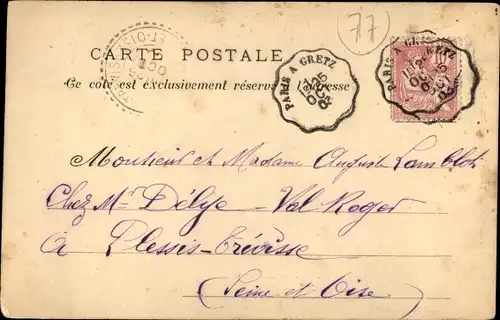 77
CARTE POSTALE
Ce côté est exclusivement réservé à l'adresse
PARIS A GRETZ
PARIS A GRETZ
Monsieur et Madame Auguste Lamblot
Chez Mr Délye - Val Roger
à Plessis-Trévisse
(Seine et Oise)